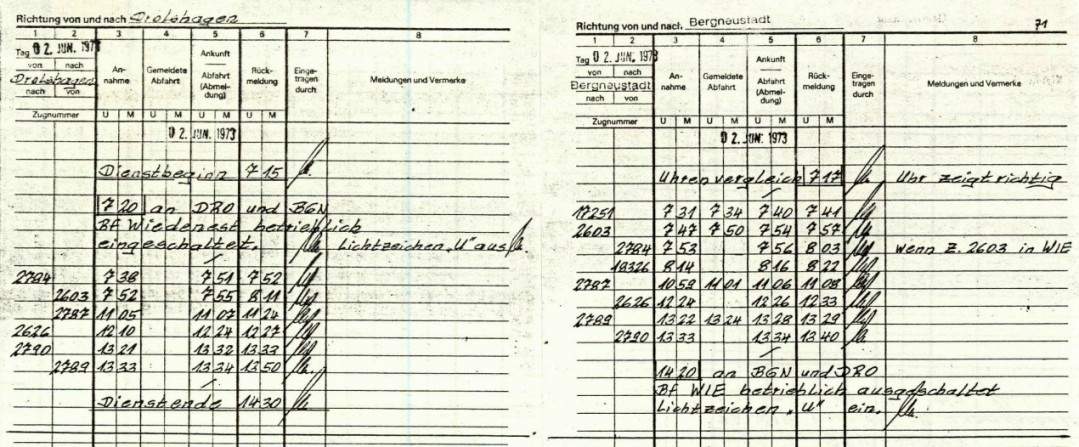 Richtung von und nach Drolshagen
1 2 3 4 5 6 7 8
Tag 02. JUN. 1973
von nach
Drolshagen
nach von
Zugnummer
An-
nahme
Gemeldete
Abfahrt
Ankunft
Abfahrt
(Abmel-
dung)
Rück-
meldung
Einge-
tragen
durch
Meldungen und Vermerke
U M U M U M U M
02. JUN. 1973
Dienstbeginn 7 15
7 20 an DRO und BGN
Bf Wiedenest betrieblich
eingeschaltet. Lichtzeichen "U" aus
2784 7 38 7 51 7 52
2603 7 52 7 55 8 11
2787 11 05 11 07 11 24
2626 12 10 12 24 12 27
2790 13 21 13 32 13 33
2789 13 33 13 34 13 50
Dienstende 14 30
Richtung von und nach Bergneustadt 71
1 2 3 4 5 6 7 8
Tag 02. JUN. 1973
von nach
Bergneustadt
nach von
Zugnummer
An-
nahme
Gemeldete
Abfahrt
Ankunft
Abfahrt
(Abmel-
dung)
Rück-
meldung
Einge-
tragen
durch
Meldungen und Vermerke
U M U M U M U M
02. JUN. 1973
Uhrenvergleich 7 17 Uhr zeigt richtig
17251 7 31 7 34 7 40 7 41
2603 7 47 7 50 7 54 7 57
2784 7 53 7 56 8 03 wenn Z. 2603 in WIE
18326 8 14 8 16 8 22
2787 10 59 11 01 11 06 11 08
2626 12 24 12 26 12 33
2789 13 22 13 24 13 28 13 29
2790 13 33 13 34 13 40
14 20 an BGN und DRO
Bf WIE betrieblich ausgeschaltet
Lichtzeichen "U" ein.